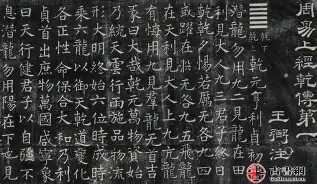 周易上經乾傳第一
王弼注
䷀乾下乾上乾元亨利貞初
九潛龍勿用九二見龍在田
利見大人九三君子終日
乾乾夕惕若厲无咎九四
或躍在淵无咎九五飛龍
在天利見大人上九亢龍
有悔用九見羣龍无首吉
彖曰大哉乾元萬物資始
乃統天雲行雨施品物流
形大明終始六位時成時
乘六龍以御天乾道變化
各正性命保合大和乃利
貞首出庶物萬國咸寧象
曰天行健君子以自彊不
息潛龍勿用陽在下也見